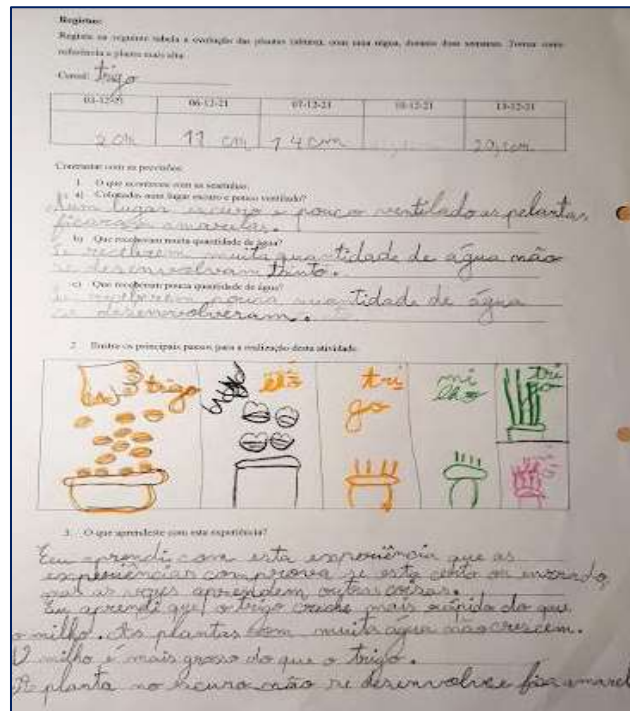 Registos:
Regista na seguinte tabela a evolução das plantas (altura), com uma régua, durante duas semanas. Tomar como
referência a planta mais alta.
Cereal: trigo
03-12-21 06-12-21 07-12-21 10-12-21 13-12-21
2 cm 11 cm 14 cm 29 cm
Confrontar com as previsões:
1. O que aconteceu com as sementes:
a) Colocadas num lugar escuro e pouco ventilado?
Num lugar escuro e pouco ventilado as pelantas
ficaram amarelas.
b) Que receberam muita quantidade de água?
Se receberem muita quantidade de água não
se desenvolvam tanto.
c) Que receberam pouca quantidade de água?
Se receberem pouca quantidade de água
se desenvolveram.
2. Ilustra os principais passos para a realização desta atividade.
trigo
tri
go
mi
lho
tri
go
3. O que aprendeste com esta experiência?
Eu aprendi com esta experiência que as
experiências comprova se esta certo ou errado,
mas as vezes aprendem outras coisas.
Eu aprendi que o trigo cresce mais rápido do que
o milho. As plantas com muita água não crescem.
O milho é mais grosso do que o trigo.
A planta no escuro não se desenvolve e fica amarel